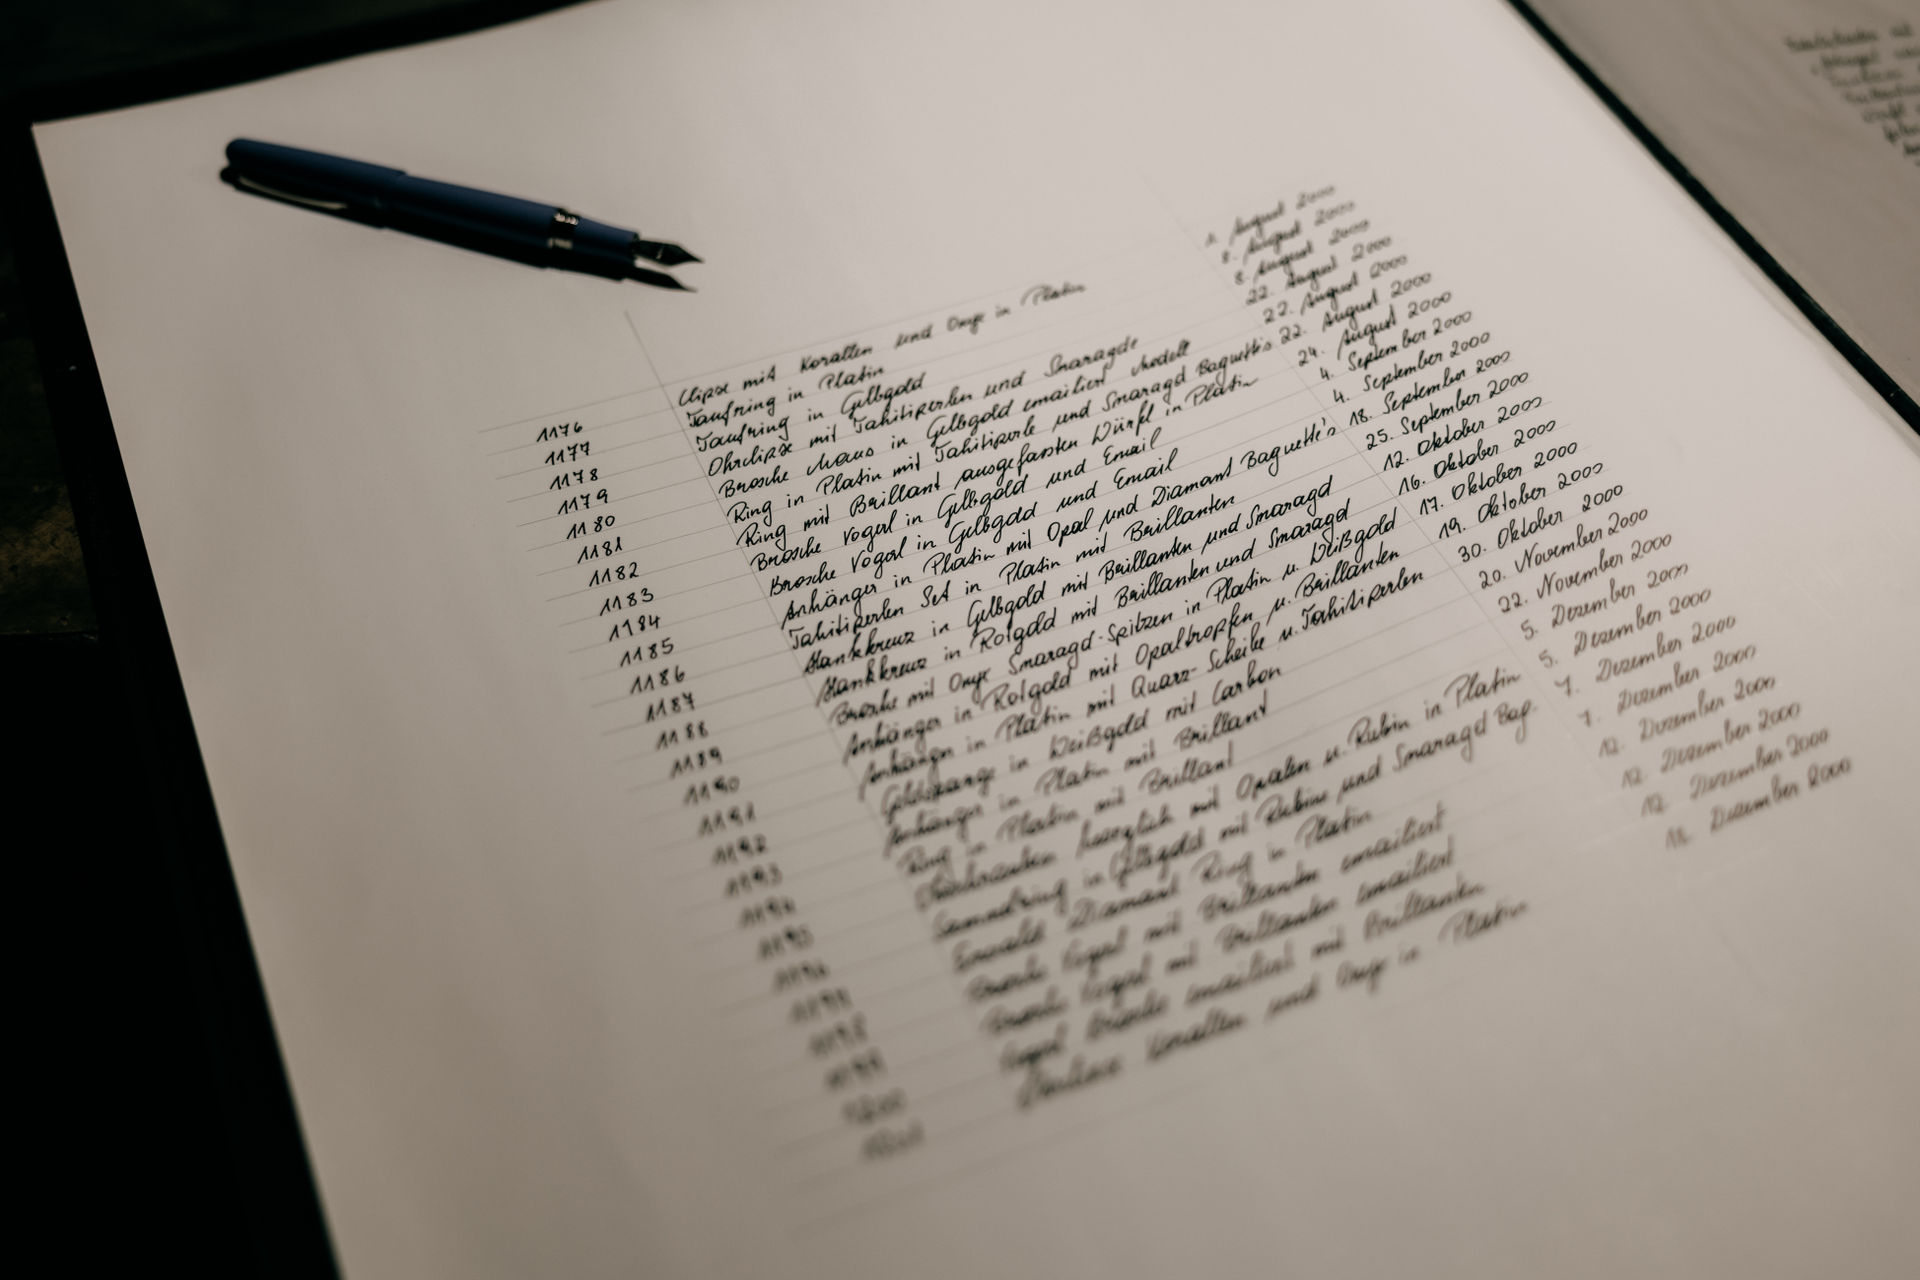 1176 Clipse mit Korallen und Onyx in Platin August 2000
1177 Taufring in Platin 8. August 2000
1178 Taufring in Gelbgold 8. August 2000
1179 Ohrclipse mit Tahitiperlen und Smaragde 22. August 2000
1180 Brosche Maus in Gelbgold emailiert Modell 22. August 2000
1181 Ring in Platin mit Tahitiperle und Smaragd Baguette's 22. August 2000
1182 Ring mit Brillant ausgefassten Würfel in Platin 24. August 2000
1183 Brosche Vogerl in Gelbgold und Email 4. September 2000
1184 Brosche Vogerl in Gelbgold und Email 4. September 2000
1185 Anhänger in Platin mit Opal und Diamant Baguette's 18. September 2000
1186 Tahitiperlen Set in Platin mit Brillanten 25. September 2000
1187 in Gelbgold mit Brillanten und Smaragd 12. Oktober 2000
1188 in Rotgold mit Brillanten und Smaragd 16. Oktober 2000
1189 Brosche mit Onyx Smaragd-Spitzen in Platin u. Weißgold 17. Oktober 2000
1190 Anhänger in Rotgold mit Opaltropfen u. Brillanten 19. Oktober 2000
1191 Anhänger in Platin mit Quarz-Scheibe u. Tahitiperlen 30. Oktober 2000
1192 Geldspange in Weißgold mit Carbon 20. November 2000
1193 Anhänger in Platin mit Brillant 22. November 2000
1194 Ring in Platin mit Brillant 5. Dezember 2000
1195 mit Opalen u. Rubin in Platin 5. Dezember 2000
1196 Sammelring in Gelbgold mit Rubine und Smaragd Bag. 7. Dezember 2000
Diamant Ring in Platin 7. Dezember 2000
Brosche Vogerl mit Brillanten emailiert 12. Dezember 2000
Brosche Vogerl mit Brillanten emailiert 12. Dezember 2000
Vogerl Brosche emailiert mit Brillanten 12. Dezember 2000
Korallen und Onyx in Platin Dezember 2000